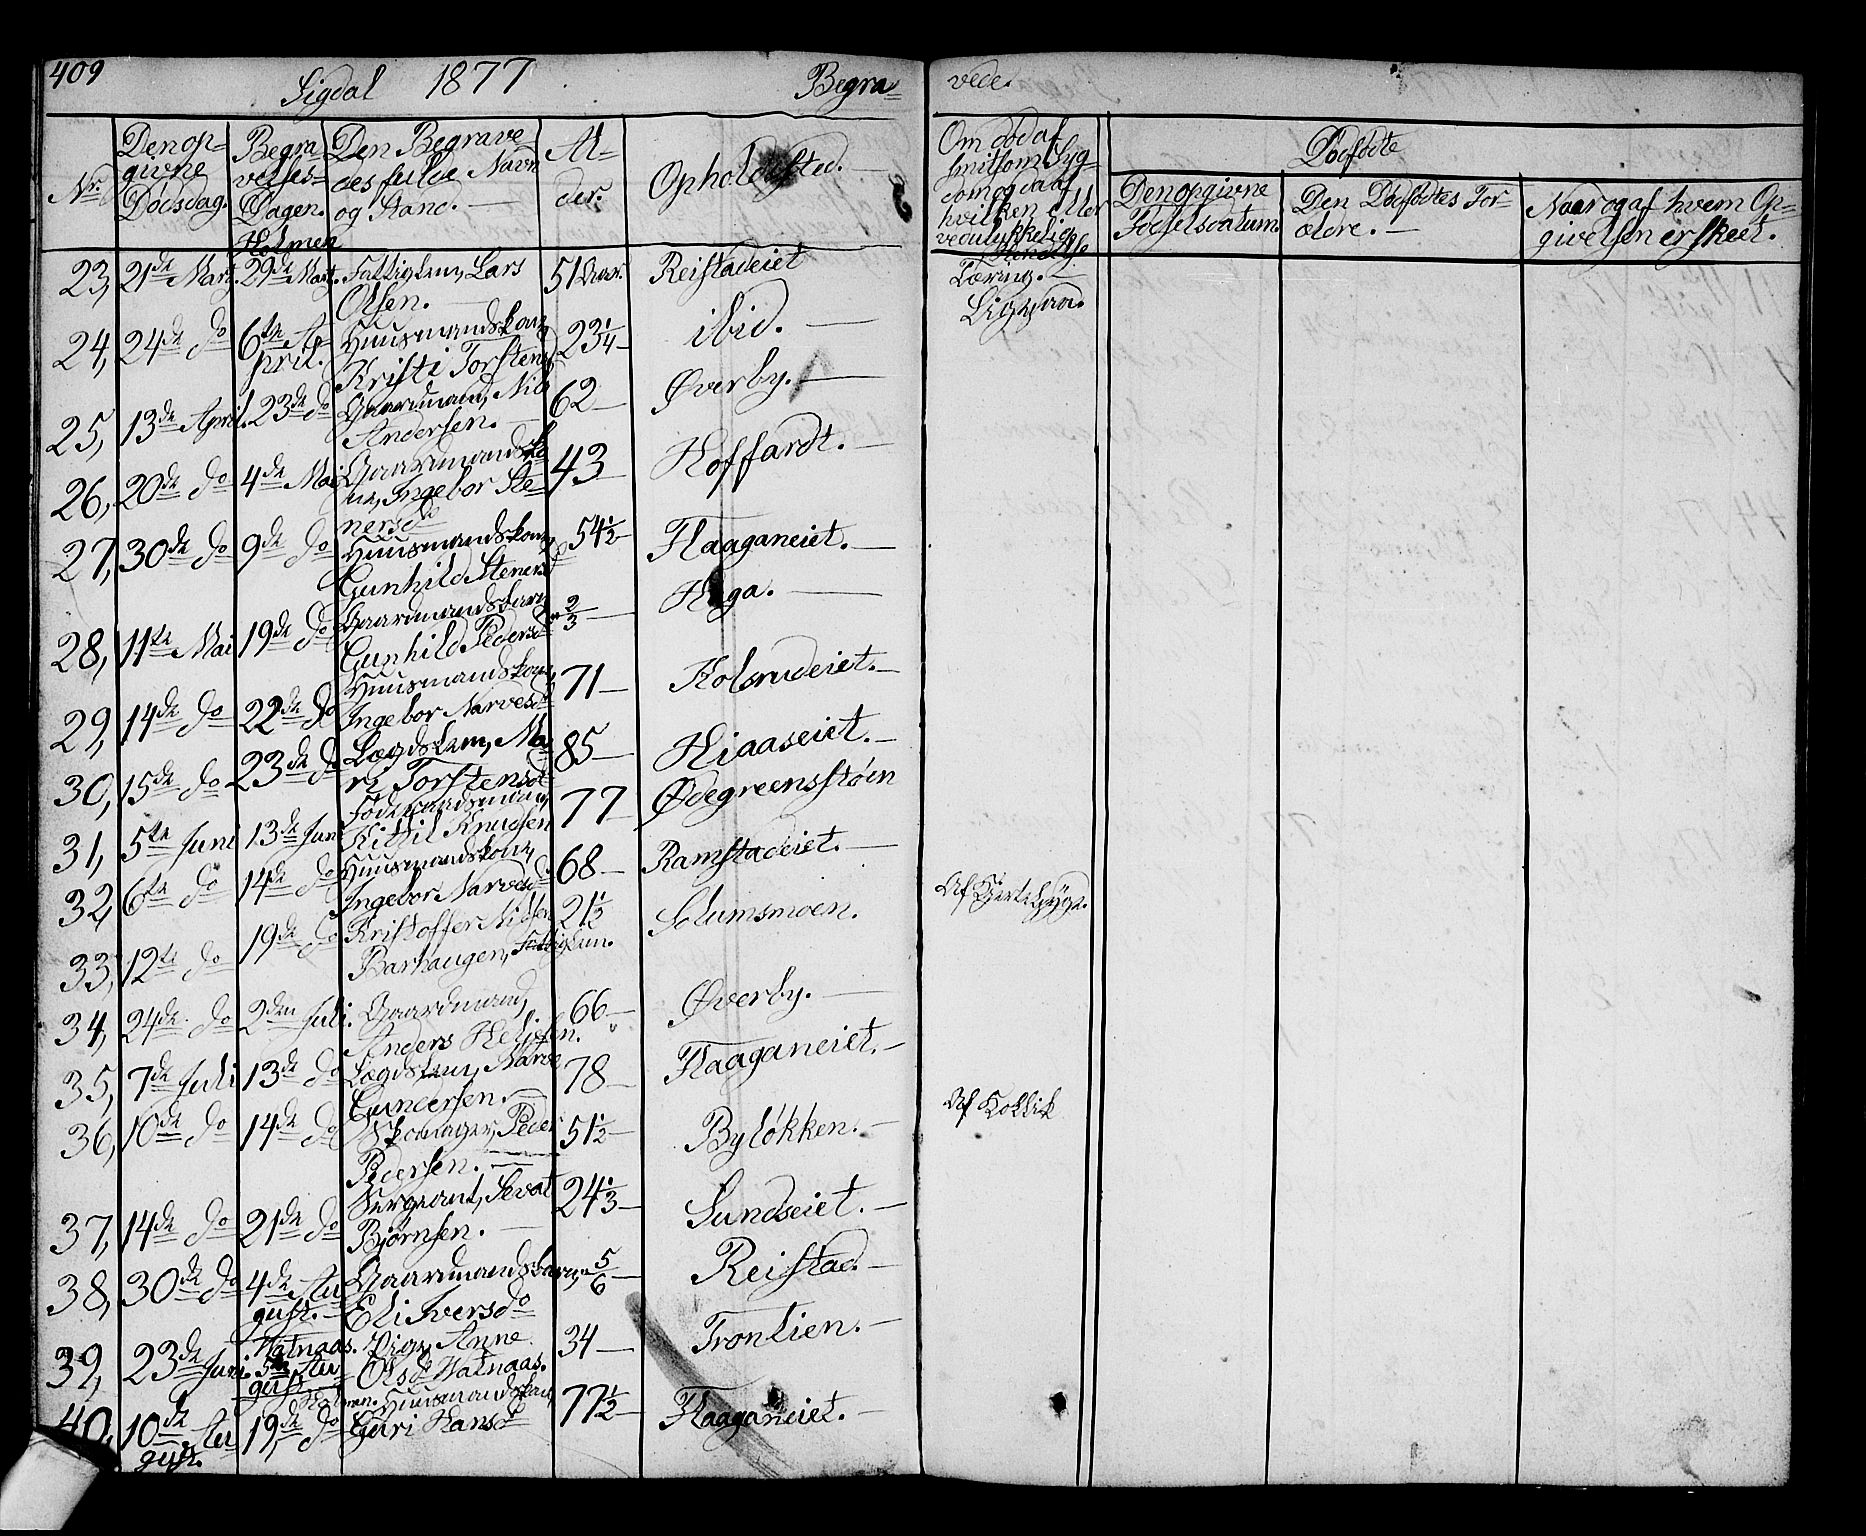 409
Sigdal 1877 Begra=
vede.
Nr.
Den op=
givne
Dødsdag.
Begra=
velses=
Dagen.
Holmen
Den Begrave
des fulde Navn
og Stand. —
Al=
der.
Opholdssted. —
Om død af
smitsom Syg=
dom og da af
hvilken eller
ved ulykkelig
Hendelse
Dødfødte
Den opgivne
Fødselsdatum.
Den Dødfødtes For=
ældre. —
Naar og af hvem Op=
givelsen er skeet.
23, 21de Marz. 29de Marz. Fattiglem, Lars
Olsen. — 51 Aar. Reistadeiet
Tæring. —
24, 24de do 6te A=
pril. Huusmandskone,
Kristi Torstensd 23 1/4 — ibid. —
25, 13de April. 23de do Gaardmand, Nils
Andersen. — 62 — Øverby. —
26, 20de do 4de Mai Gaardmandsko
ne, Ingebor Ste=
nersdo 43 — Hoffardt. —
27, 30de do 9de do Huusmandskone,
Gunhild Stenersd 54 1/2 — Flaaganeiet. —
28, 11te Mai 19de do Gaardmandsbarn
Gunhild Pedersd " 2/3 — Haga. —
29, 14de do 22de do Huusmandskone,
Ingebor Narvesd 71 — Kolsrudeiet. —
30, 15de do 23de do Lægdslem, Ma=
ri Torstensd 85 — Hiaaseiet. —
31, 5te Juni 13de Juni Føderaadsmand,
Kittil Knudsen 77 Ødegreensstøen
32, 6te do 14de do Huusmandskone,
Ingebor Narvesd 68 — Ramstadeiet. —
33, 12te do 19de do Kristoffer Nilsen
Barhaugen, Fattiglem. 21 1/2 Solumsmoen.
34, 24de do 2den Juli. Gaardmand,
Anders Helgesen. 66 — Øverby. —
35, 7de Juli 13de do Lægdslem, Narve
Gundersen. — 78 — Flaaganeiet. —
36, 10de do 14de do Skomager, Peder
Pedersen. — 51 1/2 — Byløkken. —
Af Kollik
37, 14de do 21de do Sergeant, Sevat
Bjørnsen. — 24 1/3 — Sundseiet. —
38, 30de do 4de Au
gust. — Gaardmandsbarn,
Eli Iversdo " 5/6 — Reistad. —
39, 23de Juni. Vatnaas.
5te Au
gust Pige, Anne
Olsd Vatnaas. 34 — Tronlien. —
40, 10de Au
gust. Holmen.
19de do Huusmandskone,
Guri Hansd 77 1/2 — Flaaganeiet. —